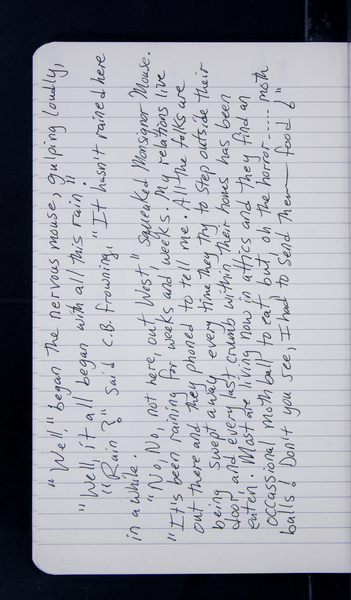 "Well," began the nervous mouse, gulping loudly,
"Well, it all began with all this rain!"
"Rain?" said C.B. frowning, "It hasn't rained here
in a while.
"No, No, not here, out West" squeaked Monsignor Mouse.
"It's been raining for weeks and weeks. My relations live
out there and they phoned to tell me. All the folks are
being swept away every time they try to step outside their
door and every last crumb within their homes has been
eaten. Most are living now in attics and they find an
occassional moth ball to eat but oh the horror..... moth
balls! Don't you see, I had to send them — food!"